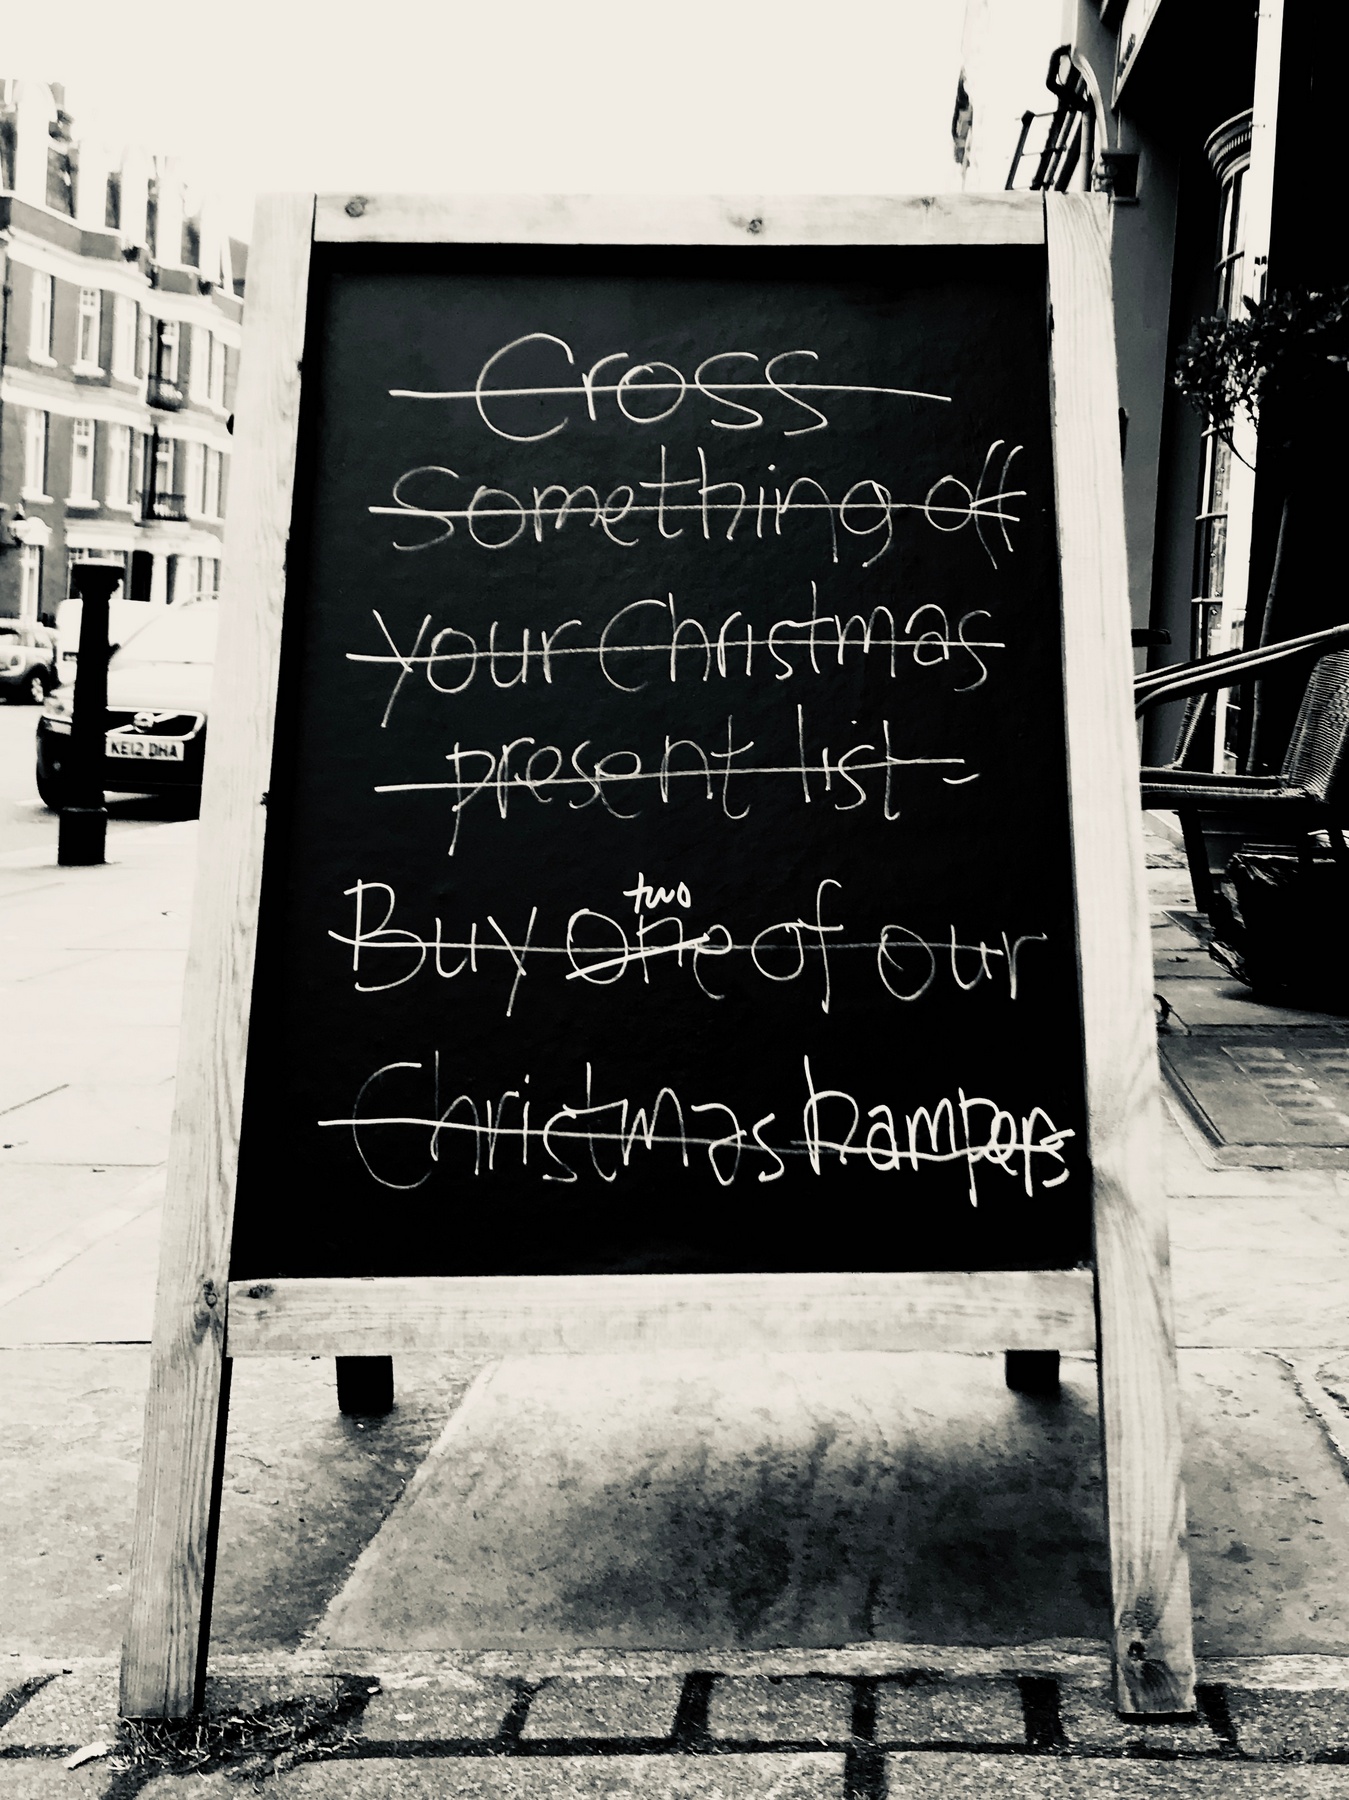 Cross
Something off
your Christmas
present list -
two
Buy one of our
Christmas hampers
KE12 DHA